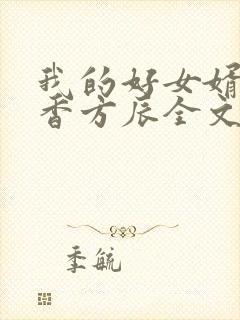 我的好女婿
香方辰全文
季毓